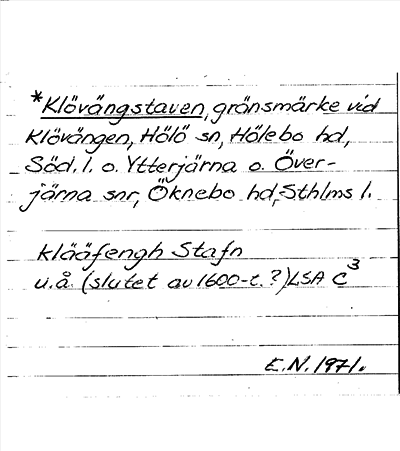 *Klövängstaven, gränsmärke vid
Klövängen, Hölö sn, Hölebo hd,
Söd. l. o. Ytterjärna o. Över-
järna snr, Öknebo hd, Sthlms l.
klääfengh Stafn
u.å. (slutet av 1600-t.?) LSA C³
E.N. 1971.